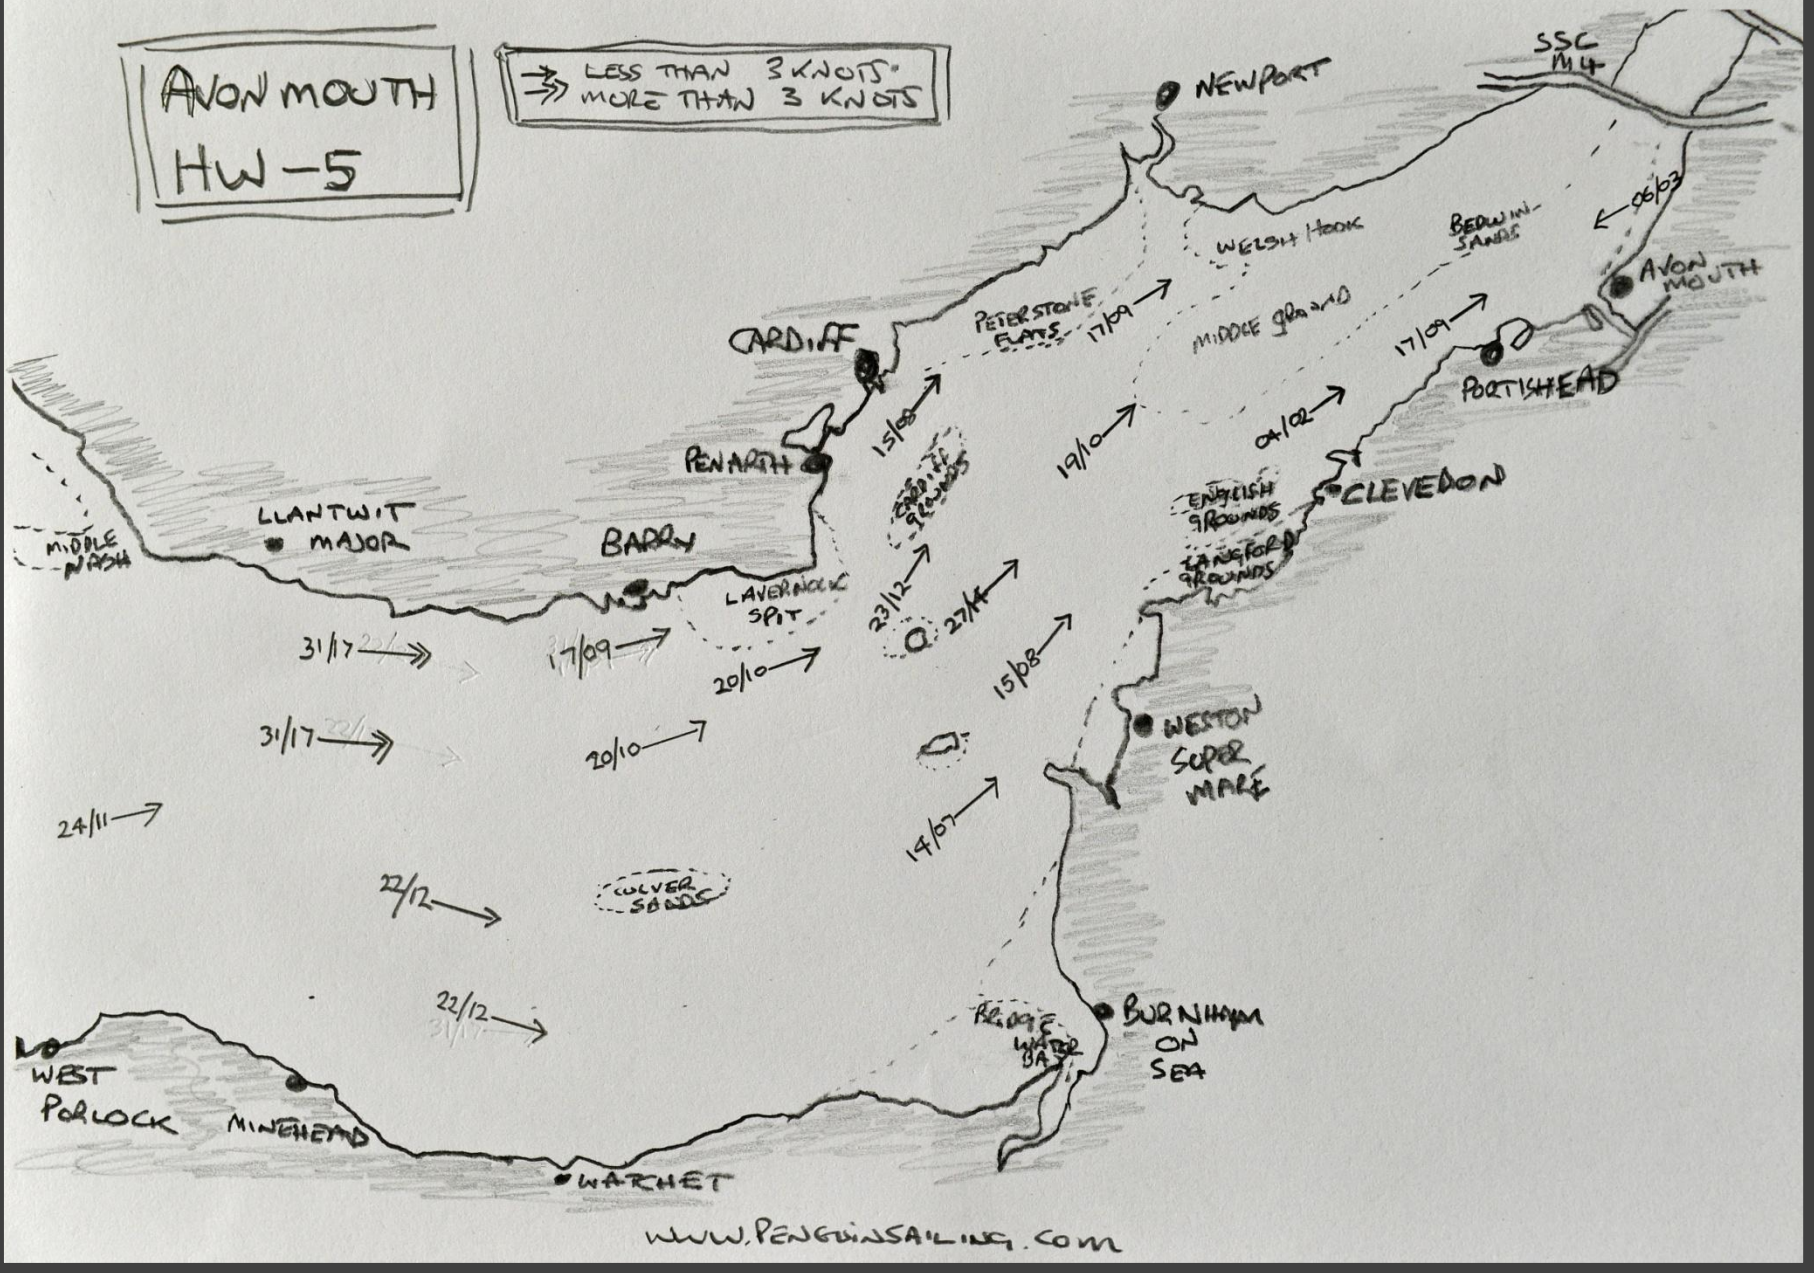 AVONMOUTH
HW-5
LESS THAN 3 KNOTS
MORE THAN 3 KNOTS
SSC
M4
NEWPORT
06/03
WELSH HOOK
BEDWIN-
SANDS
AVON
MOUTH
PETERSTONE
FLATS
17/09
MIDDLE GROUND
17/09
CARDIFF
PORTISHEAD
15/08
19/10
04/02
PENARTH
CARDIFF
GROUNDS
ENGLISH
GROUNDS
CLEVEDON
LLANTWIT
MAJOR
BARRY
MIDDLE
NASH
LANGFORD
GROUNDS
LAVERNOCK
SPIT
23/12
27/14
31/17
17/09
20/10
15/08
31/17
20/10
WESTON
SUPER
MARE
24/11
14/07
22/12
CULVER
SANDS
22/12
BRIDGE
WATER
BAY
BURNHAM
ON
SEA
WEST
PORLOCK
MINEHEAD
WATCHET
WWW.PENGUINSAILING.COM